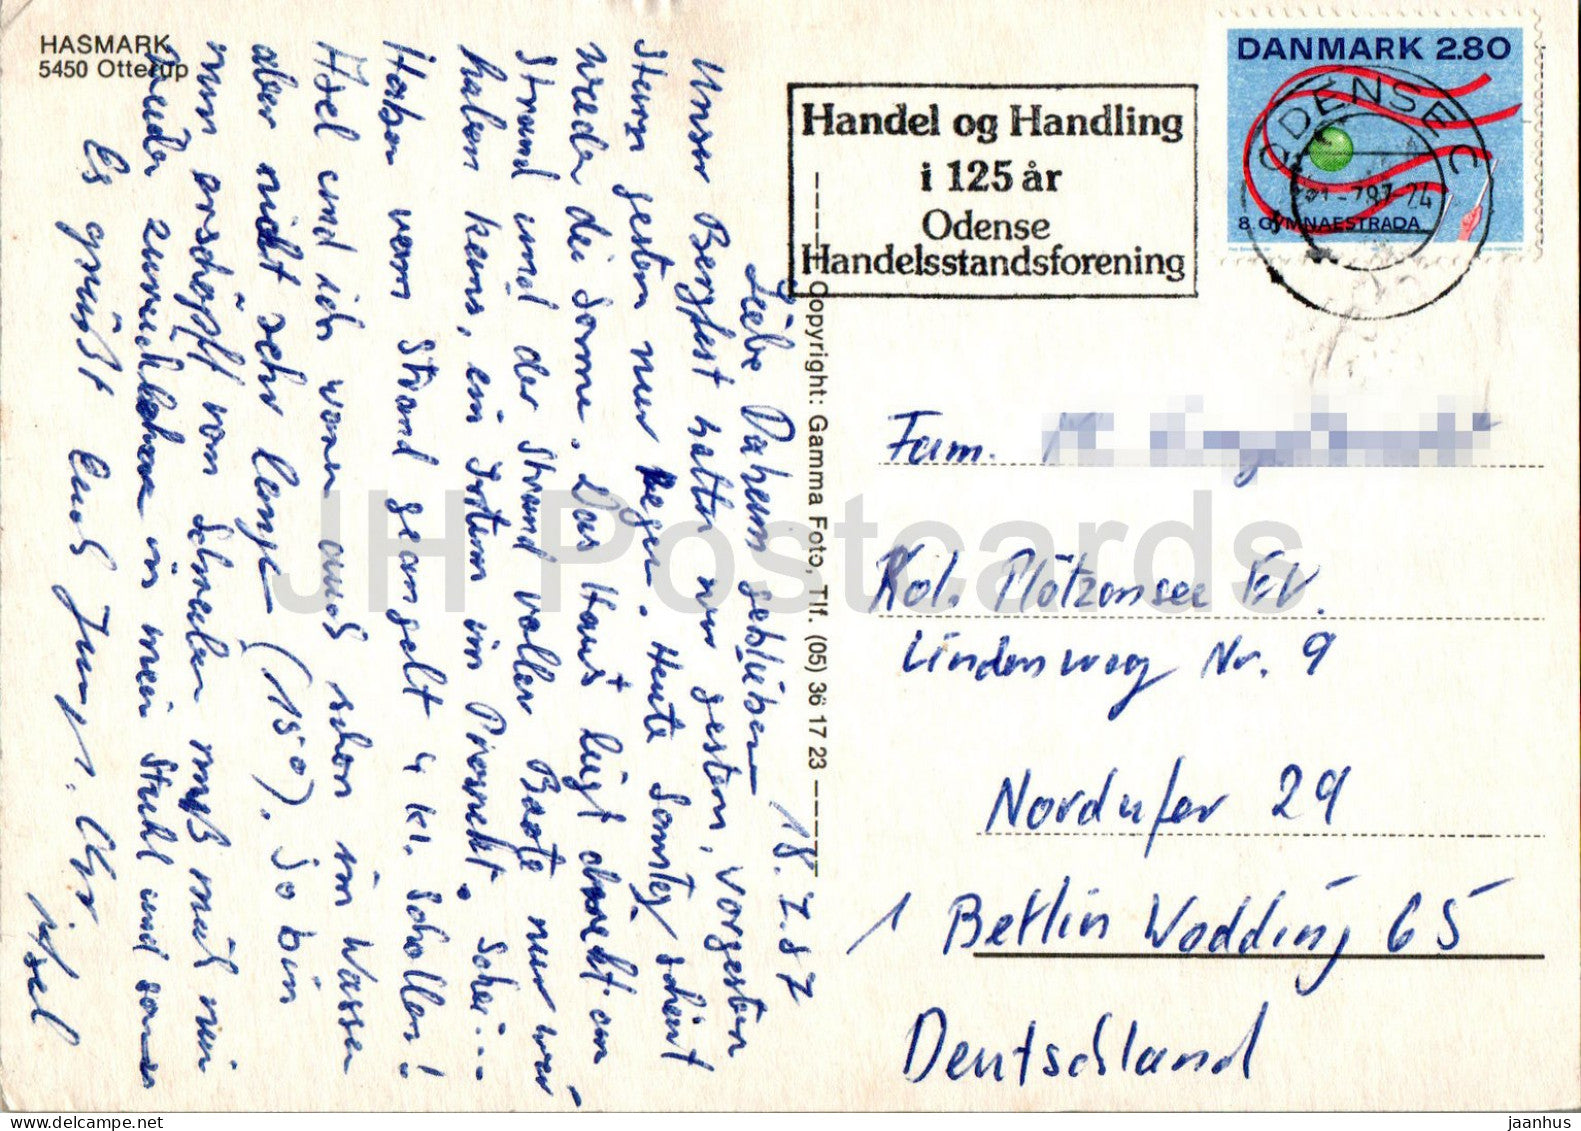 HASMARK
5450 Otterup
18.7.87
Liebe Daheimgebliebenen
Unser Bergfest hatten wir gestern, vorgestern
gestern nur Regen. Heute Samstag scheint
wieder die Sonne. Das Haus liegt direkt am
Strand und der Strand voller Boote nur wir
haben keins, ein Stern im Prospekt. Schei...
Haben vom Strand geangelt 4 kl. Schollen!
Axel und ich waren auch schon im Wasser
aber nicht sehr lange (15°). So bin
nun erschöpft vom Schreiben muß mich nun
wieder zurücklehnen in mein Stuhl und
Es grüßt Euch
Copyright: Gamma Foto, Tlf. (05) 36 17 23
Handel og Handling
i 125 år
Odense
Handelsstandsforening
DANMARK 2.80
8. GYMNAESTRADA
ODENSE C
Fam.
Kol. Plötzensee EV.
Lindenweg Nr. 9
Nordufer 29
1 Berlin Wedding 65
Deutschland
JH Postcards
www.delcampe.net
jaanhus